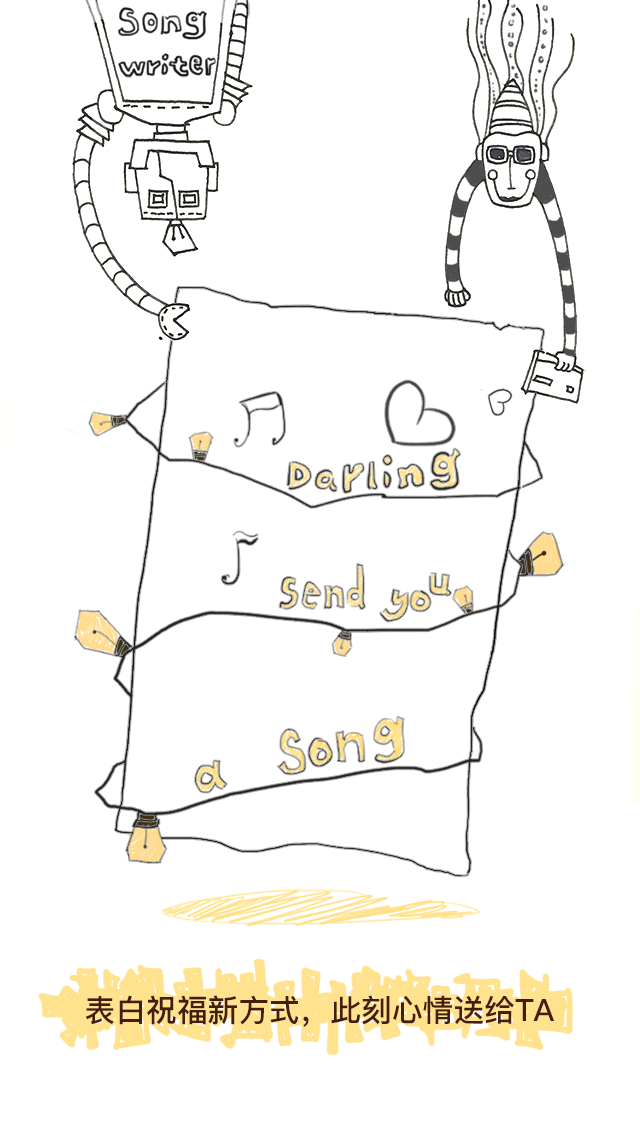 Song
writer
Darling
send you
a Song
表白祝福新方式，此刻心情送给TA